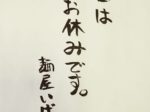 は
お休みです。
麺屋いば